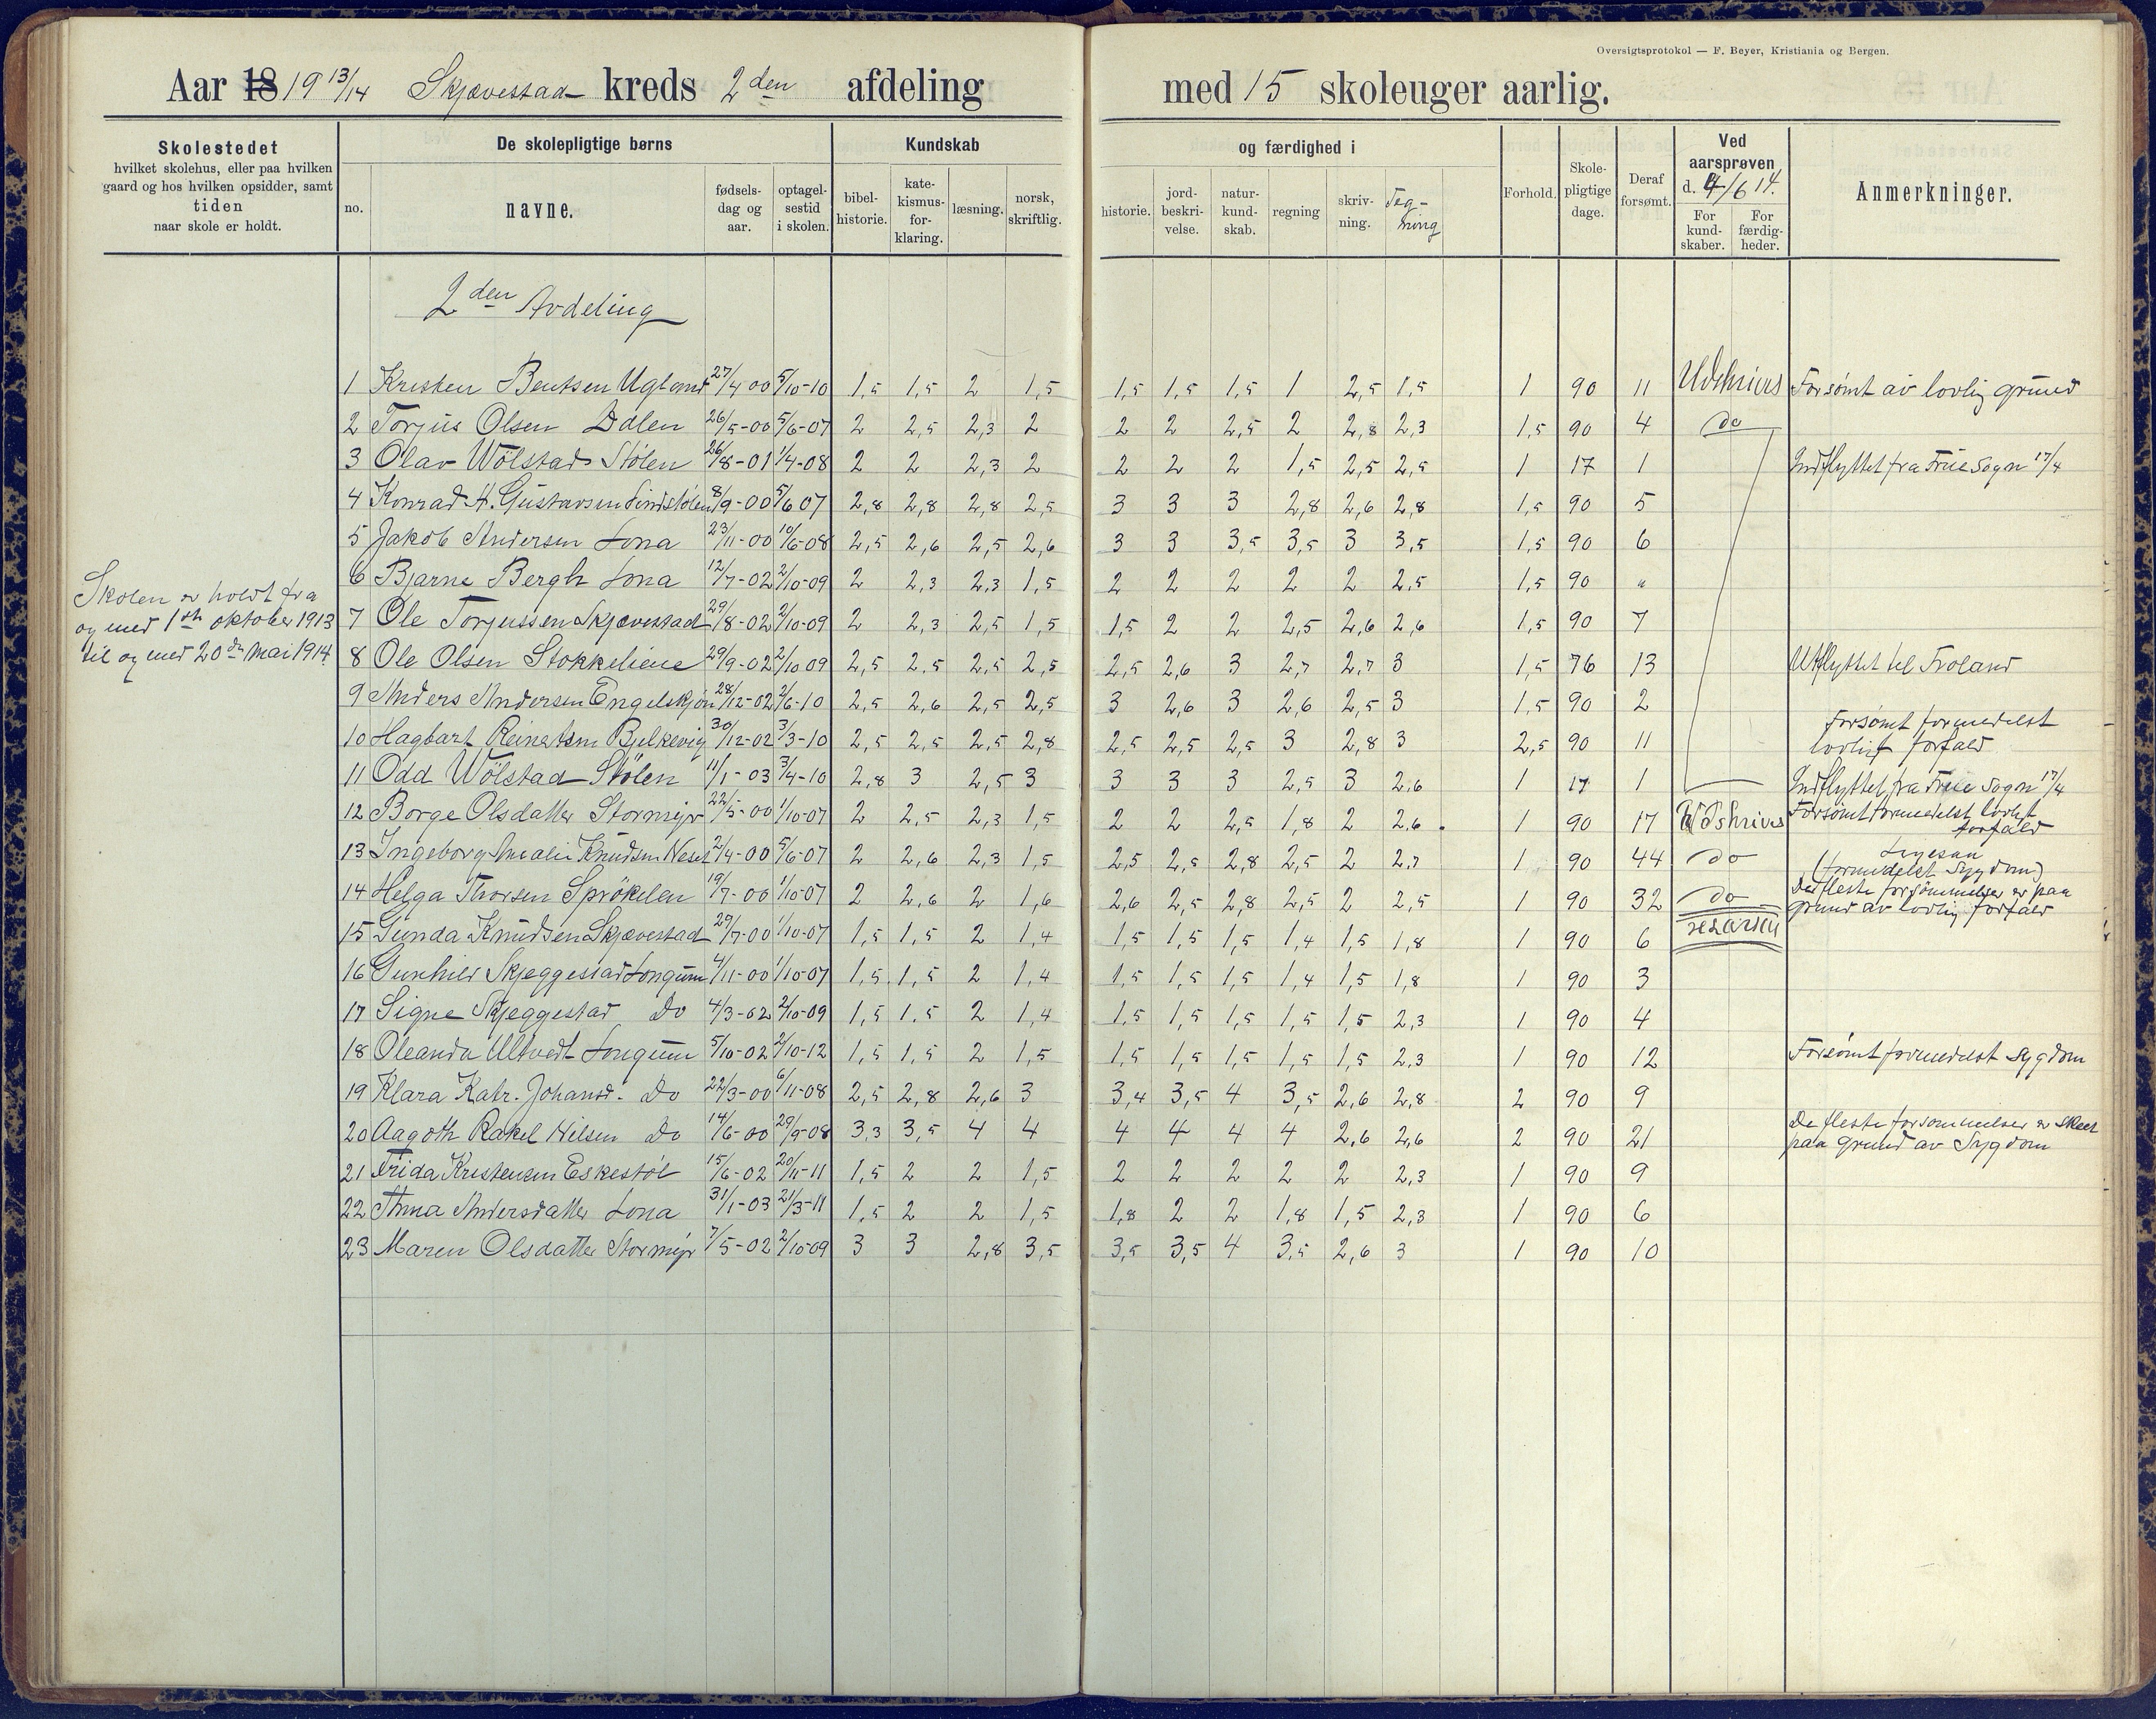 Oversigtsprotokol — F. Beyer, Kristiania og Bergen.
Aar 18 19 13/14 Skjævestad kreds 2den afdeling med 15 skoleuger aarlig.
Skolestedet
hvilket skolehus, eller paa hvilken
gaard og hos hvilken opsidder, samt
tiden
naar skole er holdt.
De skolepligtige børns
no.
navne.
fødsels-
dag og
aar.
optagel-
sestid
i skolen.
Kundskab
og færdighed i
bibel-
historie.
kate-
kismus-
for-
klaring.
læsning.
norsk,
skriftlig.
historie.
jord-
beskri-
velse.
natur-
kund-
skab.
regning
skriv-
ning.
Teg-
ning
Forhold.
Skole-
pligtige
dage.
Deraf
forsømt.
Ved
aarsprøven
d. 4/6 14.
For
kund-
skaber.
For
færdig-
heder.
Anmerkninger.
2den Avdeling
Skolen er holdt fra
og med 1ste oktober 1913
til og med 20de Mai 1914
1 Kristen Bentsen Ugland 27/4 00 5/10-10 1,5 1,5 2 1,5 1,5 1,5 1,5 1 2,5 1,5 1 90 11 Udskrives Forsømt av lovlig grund
2 Torjus Olsen Dalen 26/5-00 5/6-07 2 2,5 2,3 2 2 2 2,5 2 2,8 2,3 1,5 90 4 do
3 Olav Wölstad Stölen 26/8-01 1/4-08 2 2 2,3 2 2 2 2 1,5 2,5 2,5 1 17 1 Indflyttet fra True Sogn 17/4
4 Konrad H. Gustavsen Lindstölen 8/9-00 5/6 07 2,8 2,8 2,8 2,5 3 3 3 2,8 2,6 2,8 1,5 90 5
5 Jakob Andersen Lona 23/11-00 10/6-08 2,5 2,6 2,5 2,6 3 3 3,5 3,5 3 3,5 1,5 90 6
6 Bjarne Bergh Lona 12/7-02 2/10-09 2 2,3 2,3 1,5 2 2 2 2 2 2,5 1,5 90 "
7 Ole Torjussen Skjævestad 29/8-02 2/10-09 2 2,3 2,5 1,5 1,5 2 2 2,5 2,6 2,6 1,5 90 7
8 Ole Olsen Stokkeliene 29/9-02 2/10 09 2,5 2,5 2,5 2,5 2,5 2,6 3 2,7 2,7 3 1,5 76 13 Utflyttet til Froland
9 Anders Andersen Engelskjön 28/12-02 2/6-10 2,5 2,6 2,5 2,5 3 2,6 3 2,6 2,5 3 1,5 90 2
10 Hagbart Reinertsen Bjelkevig 30/12-02 3/3-10 2,5 2,5 2,5 2,8 2,5 2,5 2,5 3 2,8 3 2,5 90 11 Forsømt formedelst
lovligt forfald
11 Odd Wölstad Stölen 11/1-03 3/4-10 2,8 3 2,5 3 3 3 3 2,5 3 2,6 1 17 1 Indflyttet fra True Sogn 17/4
12 Borge Olsdatter Stormyr 22/5-00 1/10-07 2 2,5 2,3 1,5 2 2 2,5 1,8 2 2,6 1 90 17 Udskrives Forsømt formedelst lovligt
forfald
13 Ingeborg Amalie Knudsen Neset 2/4-00 5/6-07 2 2,6 2,3 1,5 2,5 2,5 2,8 2,5 2 2,7 1 90 44 do
(formedelst Sygdom)
14 Helga Thorsen Sprökelen 19/7-00 1/10-07 2 2,6 2 1,6 2,6 2,5 2,8 2,5 2 2,5 1 90 32 do De fleste forsømmelser er paa
grund av lovlig forfald
15 Gunda Knudsen Skjævestad 29/7-00 1/10-07 1,5 1,5 2 1,4 1,5 1,5 1,5 1,4 1,5 1,8 1 90 6
16 Gunhild Skjeggestad Longum 4/11-00 1/10-07 1,5 1,5 2 1,4 1,5 1,5 1,5 1,4 1,5 1,8 1 90 3
17 Signe Skjeggestad Do 4/3-02 2/10-09 1,5 1,5 2 1,4 1,5 1,5 1,5 1,5 1,5 2,3 1 90 4
18 Oleanda Ultvedt Longum 5/10-02 2/10-12 1,5 1,5 2 1,5 1,5 1,5 1,5 1,5 1,5 2,3 1 90 12 Forsømt formedelst Sygdom
19 Klara Katr. Johansd. Do 22/3-00 6/11-08 2,5 2,8 2,6 3 3,4 3,5 4 3,5 2,6 2,8 2 90 9
20 Aagoth Rakel Nilsen Do 14/6-00 29/9-08 3,3 3,5 4 4 4 4 4 4 2,6 2,6 2 90 21 De fleste forsømmelser er skeet
paa grund av Sygdom
21 Frida Kristensen Eskestöl 15/6-02 20/11-11 1,5 2 2 1,5 2 2 2 2 2 2,3 1 90 9
22 Anna Andersdatter Lona 31/1-03 21/3-11 1,5 2 2 1,5 1,8 2 2 1,8 1,5 2,3 1 90 6
23 Maren Olsdatter Stormyr 7/5-02 2/10-09 3 3 2,8 3,5 3,5 3,5 4 3,5 2,6 3 1 90 10